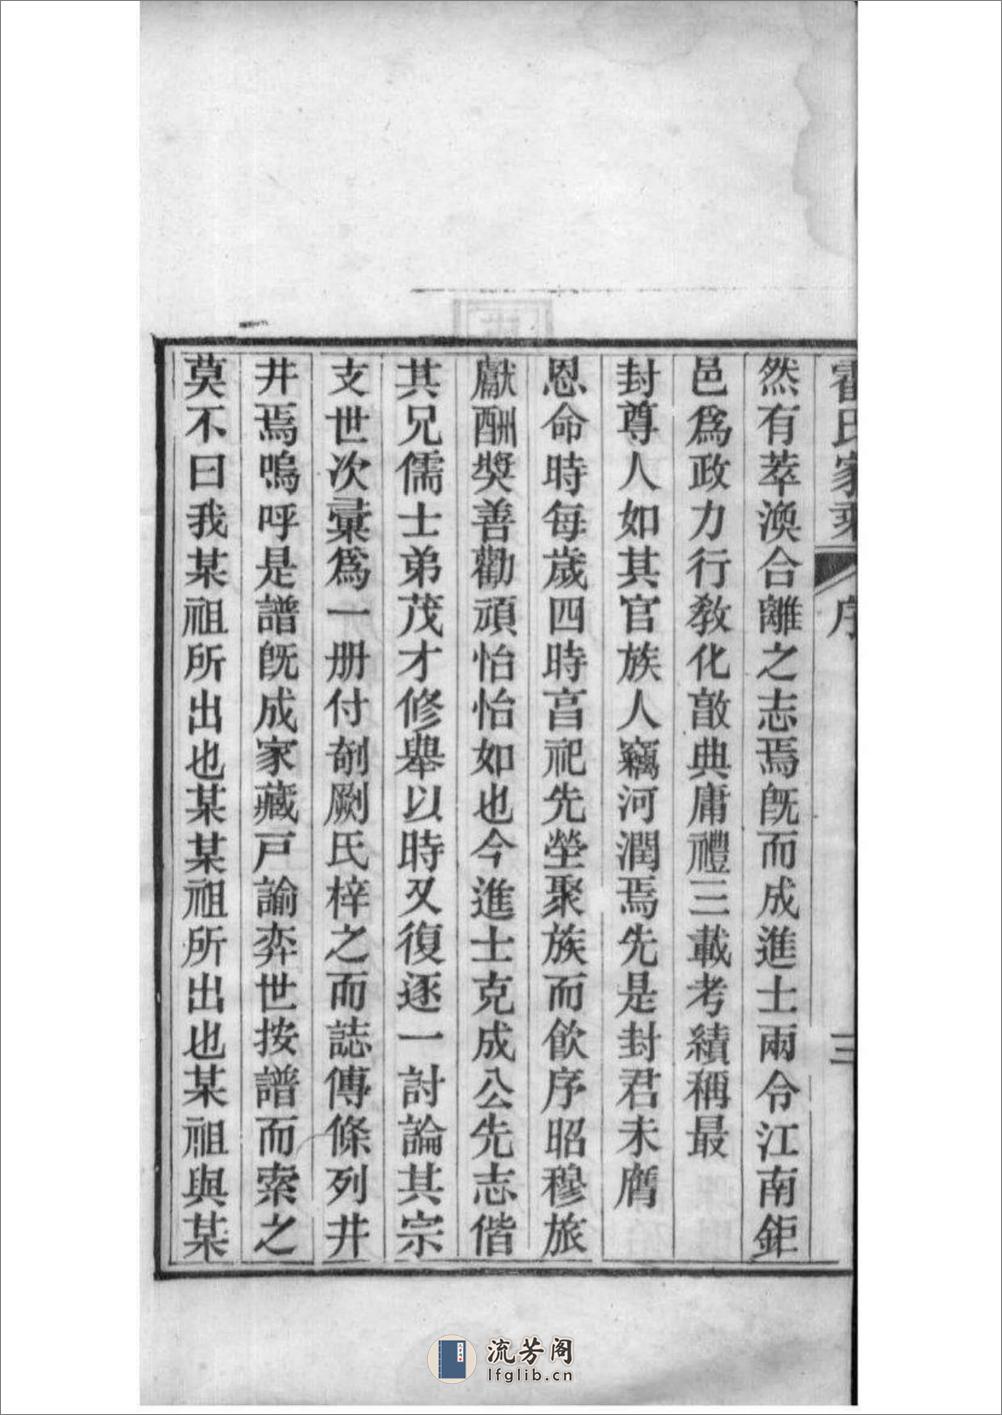 霍氏家乘
序
三
然有萃渙合離之志焉旣而成進士兩令江南鉅
邑爲政力行敎化敿典庸禮三載考績稱最
封尊人如其官族人竊河潤焉先是封君未膺
恩命時每歲四時亯祀先塋聚族而飮序昭穆旅
獻酬奬善勸頑怡怡如也今進士克成公先志偕
其兄儒士弟茂才修舉以時又復逐一討論其宗
支世次彚爲一册付剞劂氏梓之而誌傳條列井
井焉嗚呼是譜旣成家藏戸諭奕世按譜而索之
莫不曰我某祖所出也某某祖所出也某祖與某
流芳阁
lfglib.cn